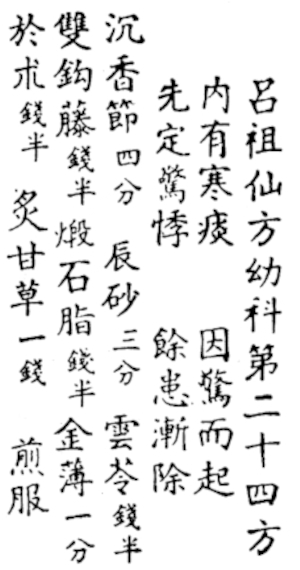 呂祖仙方幼科第二十四方
內有寒痰 因驚而起
先定驚悸 餘患漸除
沉香節四分 辰砂三分 雲苓錢半
雙鈎藤錢半 煅石脂錢半 金薄一分
於朮錢半 炙甘草一錢 煎服